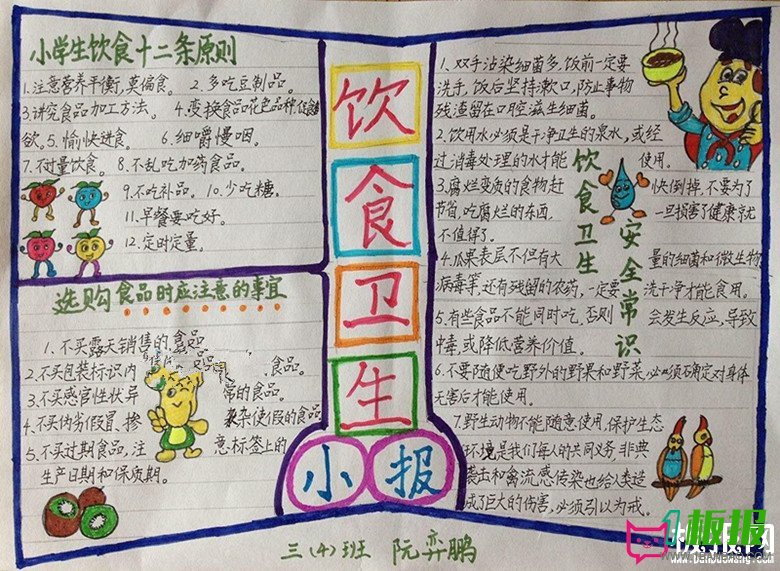 小学生饮食十二条原则
1.注意营养平衡,莫偏食。 2.多吃豆制品。
3.讲究食品加工方法。 4.变换食品花色品种促食
欲。5.愉快进食。 6.细嚼慢咽。
7.不过量饮食。 8.不乱吃加药食品。
9.不吃补品。 10.少吃糖。
11.早餐要吃好。
12.定时定量。
选购食品时应注意的事宜
1.不买露天销售的食品
2.不买包装标识内 食品。
3.不买感官性状异 常的食品。
4.不买伪劣假冒、掺 杂使假的食品
5.不买过期食品,注 意标签上的
生产日期和保质期。
饮
食
卫
生
小报
1.双手沾染细菌多,饭前一定要
洗手,饭后坚持漱口,防止事物
残渣留在口腔滋生细菌。
2.饮用水必须是干净卫生的泉水,或经
过消毒处理的水才能 使用。
3.腐烂变质的食物赶 快倒掉,不要为了
节省,吃腐烂的东西, 一旦损害了健康就
不值得了。
4.瓜果表层不但有大 量的细菌和微生物,
病毒等,还有残留的农药,一定要 洗干净才能食用。
5.有些食品不能同时吃,否则 会发生反应,导致
中毒或降低营养价值。
6.不要随便吃野外的野果和野菜,必须确定对身体
无害后才能使用。
7.野生动物不能随意使用,保护生态
环境是我们每人的共同义务,非典
袭击和禽流感传染也给人类造
成了巨大的伤害,必须引以为戒。
饮食卫生
安全常识
三(4)班 阮弈鹏
板报网